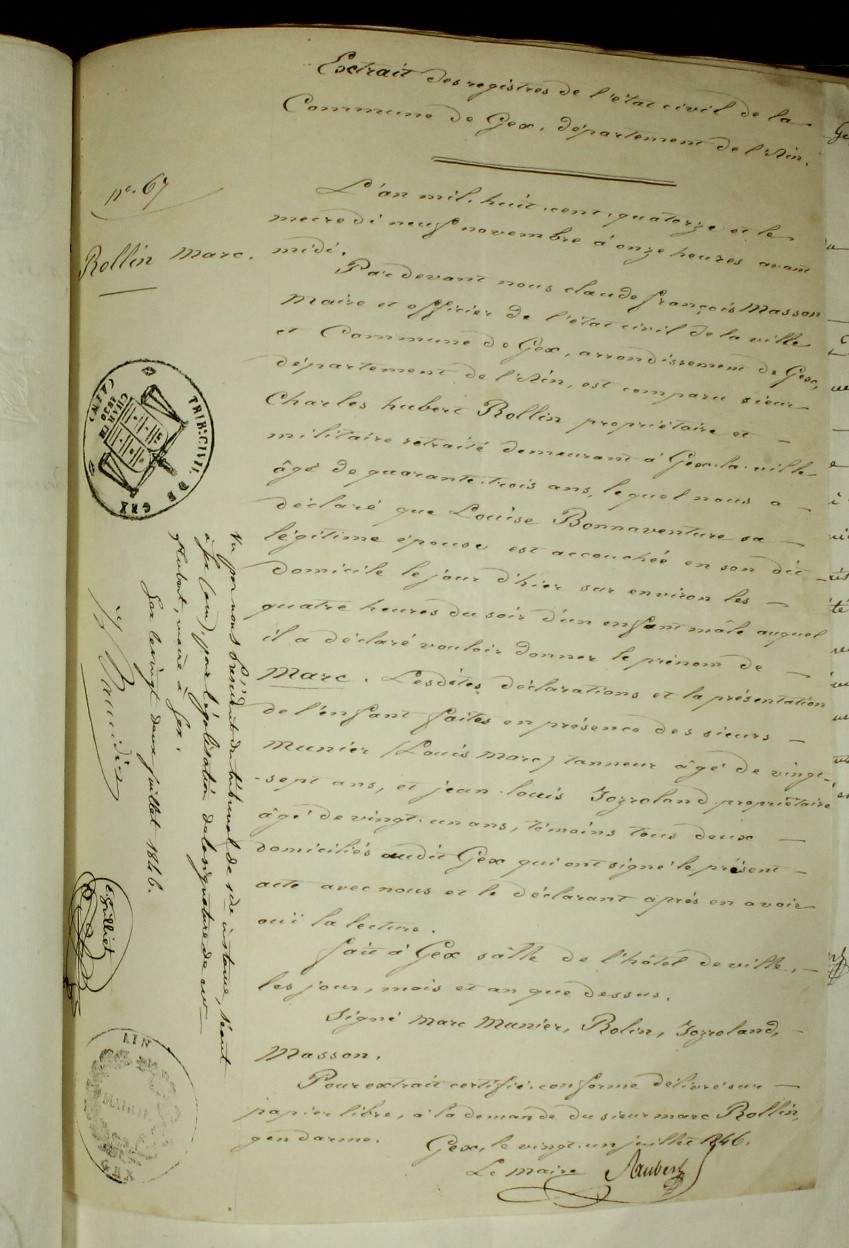 Extrait des registres de l'état civil de la
Commune de Gex, département de l'Ain.
n°. 67
Rollin Marc.
L'an mil. huit. cent. quatorze et le
mecredi neuf novembre à onze heures avant
midi.
Par devant nous claude françois Masson
Maire et officier de l'état civil de la ville
et Commune de Gex, arrondissement de Gex,
département de l'Ain, est comparu sieur
Charles hubert Rollin propriétaire et
militaire retraité demeurant à Gex la ville
âgé de quarante trois ans, lequel nous a
déclaré que Louise Bonnaventure sa
légitime épouse est accouchée en son dit
domicile le jour d'hier sur environ les
quatre heures du soir d'un enfant mâle auquel
il a déclaré vouloir donner le prénom de
Marc. Lesdites déclarations et la présentation
de l'enfant faites en présence des sieurs
Munier (Louis Marc) tanneur âgé de vingt-
-sept ans, et jean louis Jozroland propriétaire
âgé de vingt un ans, témoins tous deux
domiciliés audit Gex qui ont signé le présent
acte avec nous et le déclarant après en avoir
ouï la lecture.
fait à Gex salle de l'hôtel de ville,
les jour, mois et an que dessus.
Signé Marc Munier, Rolin, Jozroland,
Masson.
Pour extrait certifié conforme délivré sur
papier libre, à la demande du sieur marc Rollin,
gendarme.
Gex, le vingt un juillet 1846.
Le Maire
TRIB: CIVIL DE GEX
(AIN)
Vu par nous Président du tribunal de 1ère instance, séant
à Gex (ain), pour légalisation de la signature de mr
, maire à Gex.
Gex le vingt deux juillet 1846.
AIN
MAIRIE
GEX